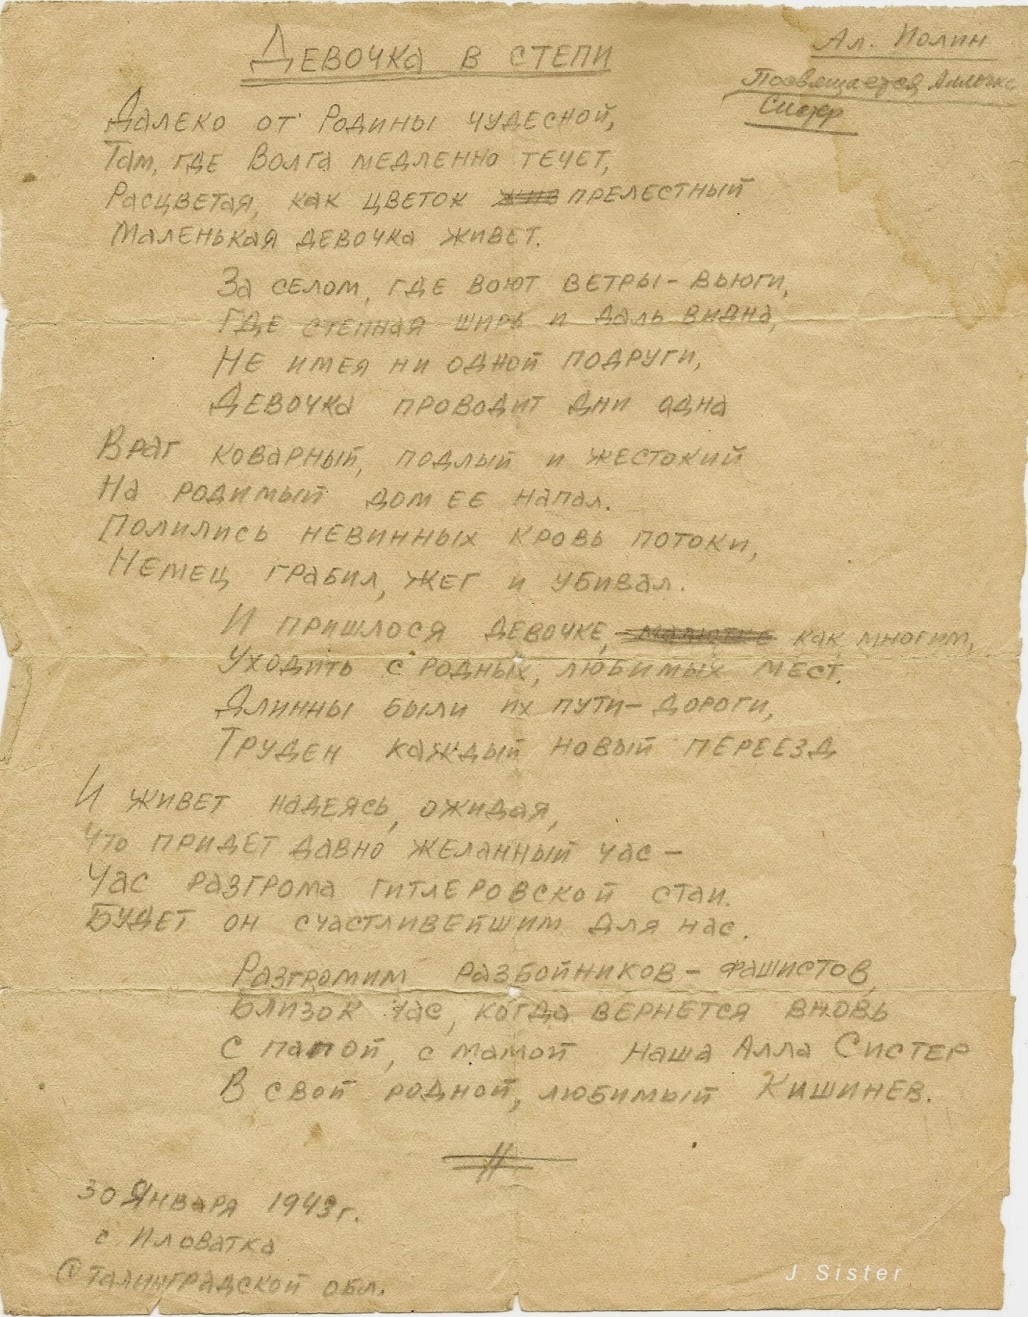 Девочка в степи
Ал. Иолин
Посвящается Аллочке
Систер
Далеко от Родины чудесной,
Там, где Волга медленно течет,
Расцветая, как цветок жив прелестный
Маленькая девочка живет.
За селом, где воют ветры - вьюги,
Где степная ширь и даль видна,
Не имея ни одной подруги,
Девочка проводит дни одна
Враг коварный, подлый и жестокий
На родимый дом ее напал.
Полились невинных кровь потоки,
Немец грабил, жег и убивал.
И пришлося девочке, малютке как многим,
Уходить с родных, любимых мест.
Длинны были их пути - дороги,
Труден каждый новый переезд
И живет надеясь, ожидая,
Что придет давно желанный час -
Час разгрома гитлеровской стаи.
Будет он счастливейшим для нас.
Разгромим разбойников - фашистов,
Близок час, когда вернется вновь
С папой, с мамой наша Алла Систер
В свой родной, любимый Кишинев.
30 Января 1943 г.
с Иловатка
Сталинградской обл.
J Sister